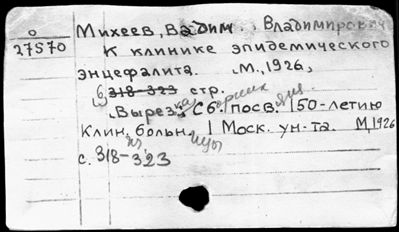 о
27570
Михеев, Вадим Владимирович
К клинике эпидемического
энцефалита. М., 1926,
6 318-323 стр.
Вырезка из Сборник посв. 150-летию
Клин. больницы I Моск. ун-та. М, 1926
с. 318-323